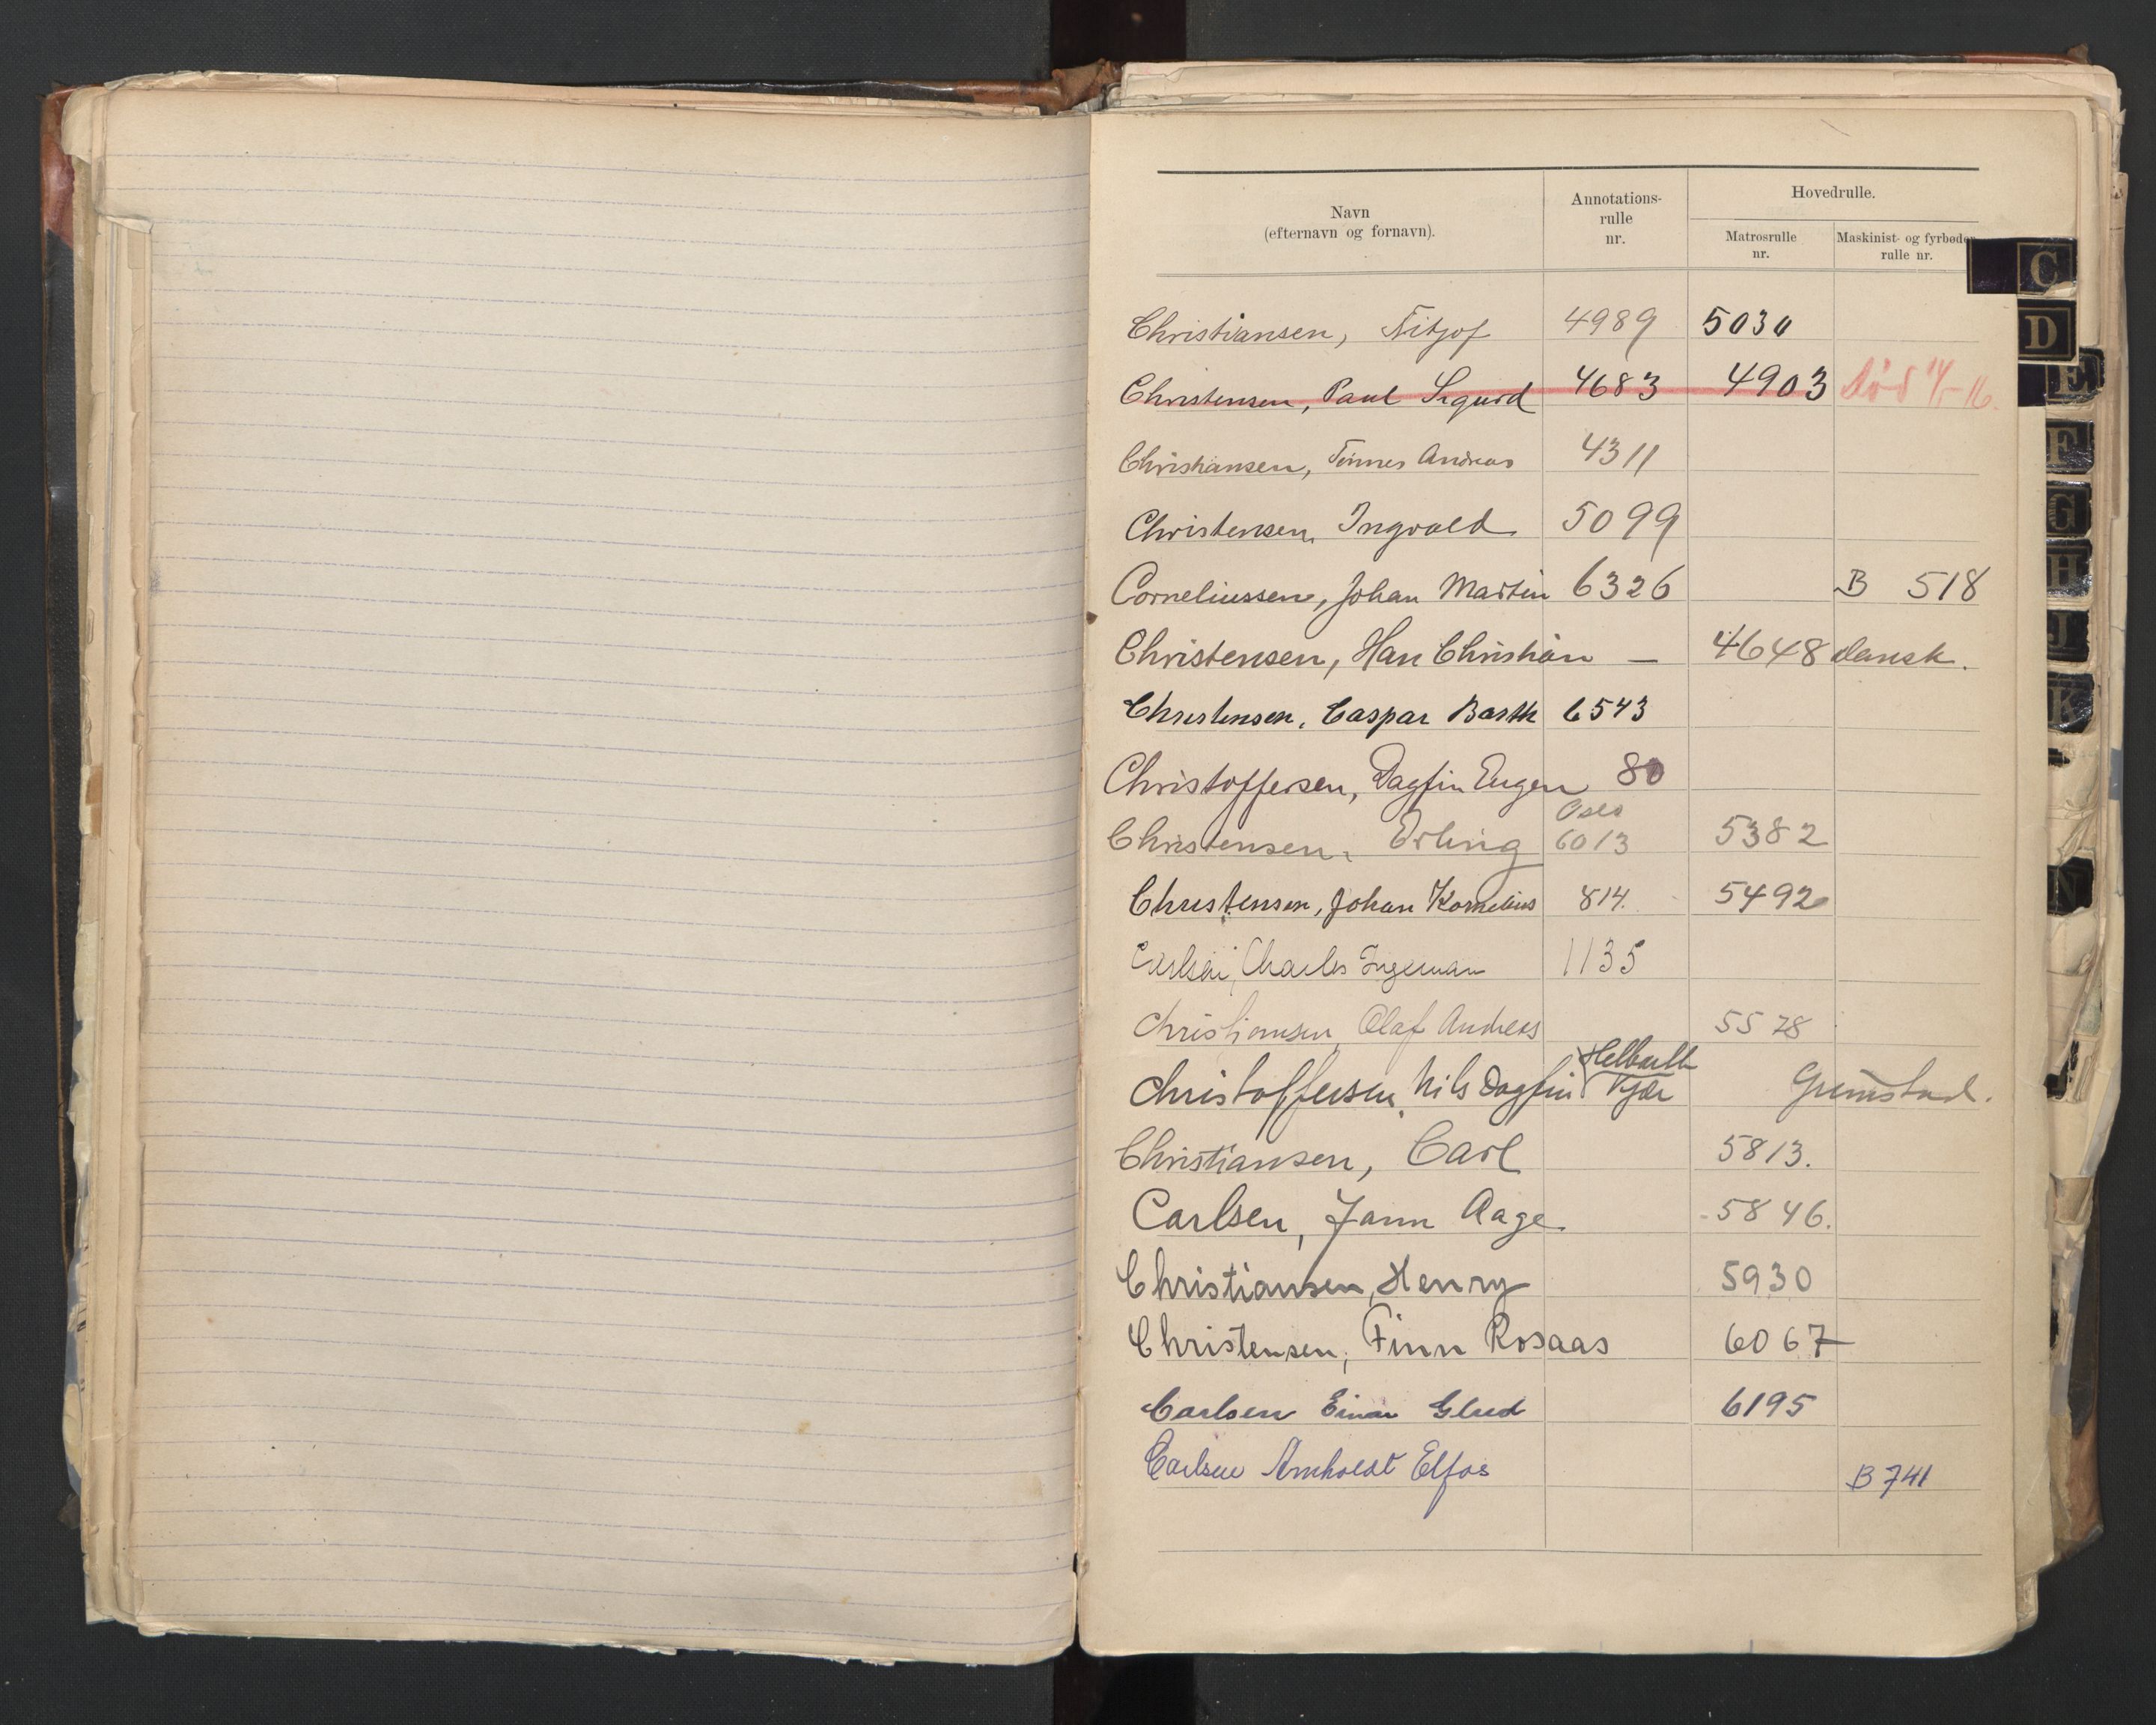 Navn (efternavn og fornavn). Annotations-rulle nr. Hovedrulle.
Matrosrulle nr. Maskinist- og fyrbøder rulle nr.
Christiansen, Fritjof 4989 5030
Christensen, Paul Sigurd 4683 4903 død
Christiansen, Tønnes Andreas 4311
Christensen, Ingvald 5099
Corneliussen, Johan Martin 6326 B 518
Christensen, Han Christian — 4648 dansk.
Christensen, Caspar Barth 6543
Christoffersen, Dagfin Eugen 80
Oslo
Christensen, Erling 6013 5382
Christensen, Johan Kornelius 814. 5492
Carlsen, Charles Ingeman 1135
Christiansen, Olaf Andreas 5578
Christoffersen, Nils Dagfin Kjær Grimstad.
Christiansen, Carl 5813.
Carlsen, Jann Aage 5846.
Christiansen, Henry 5930
Christensen, Finn Rosaas 6067
Carlsen Einar Glud 6195
Carlsen Arnholdt Elfos B 741
C
D
E
F
G
H
J
K
N